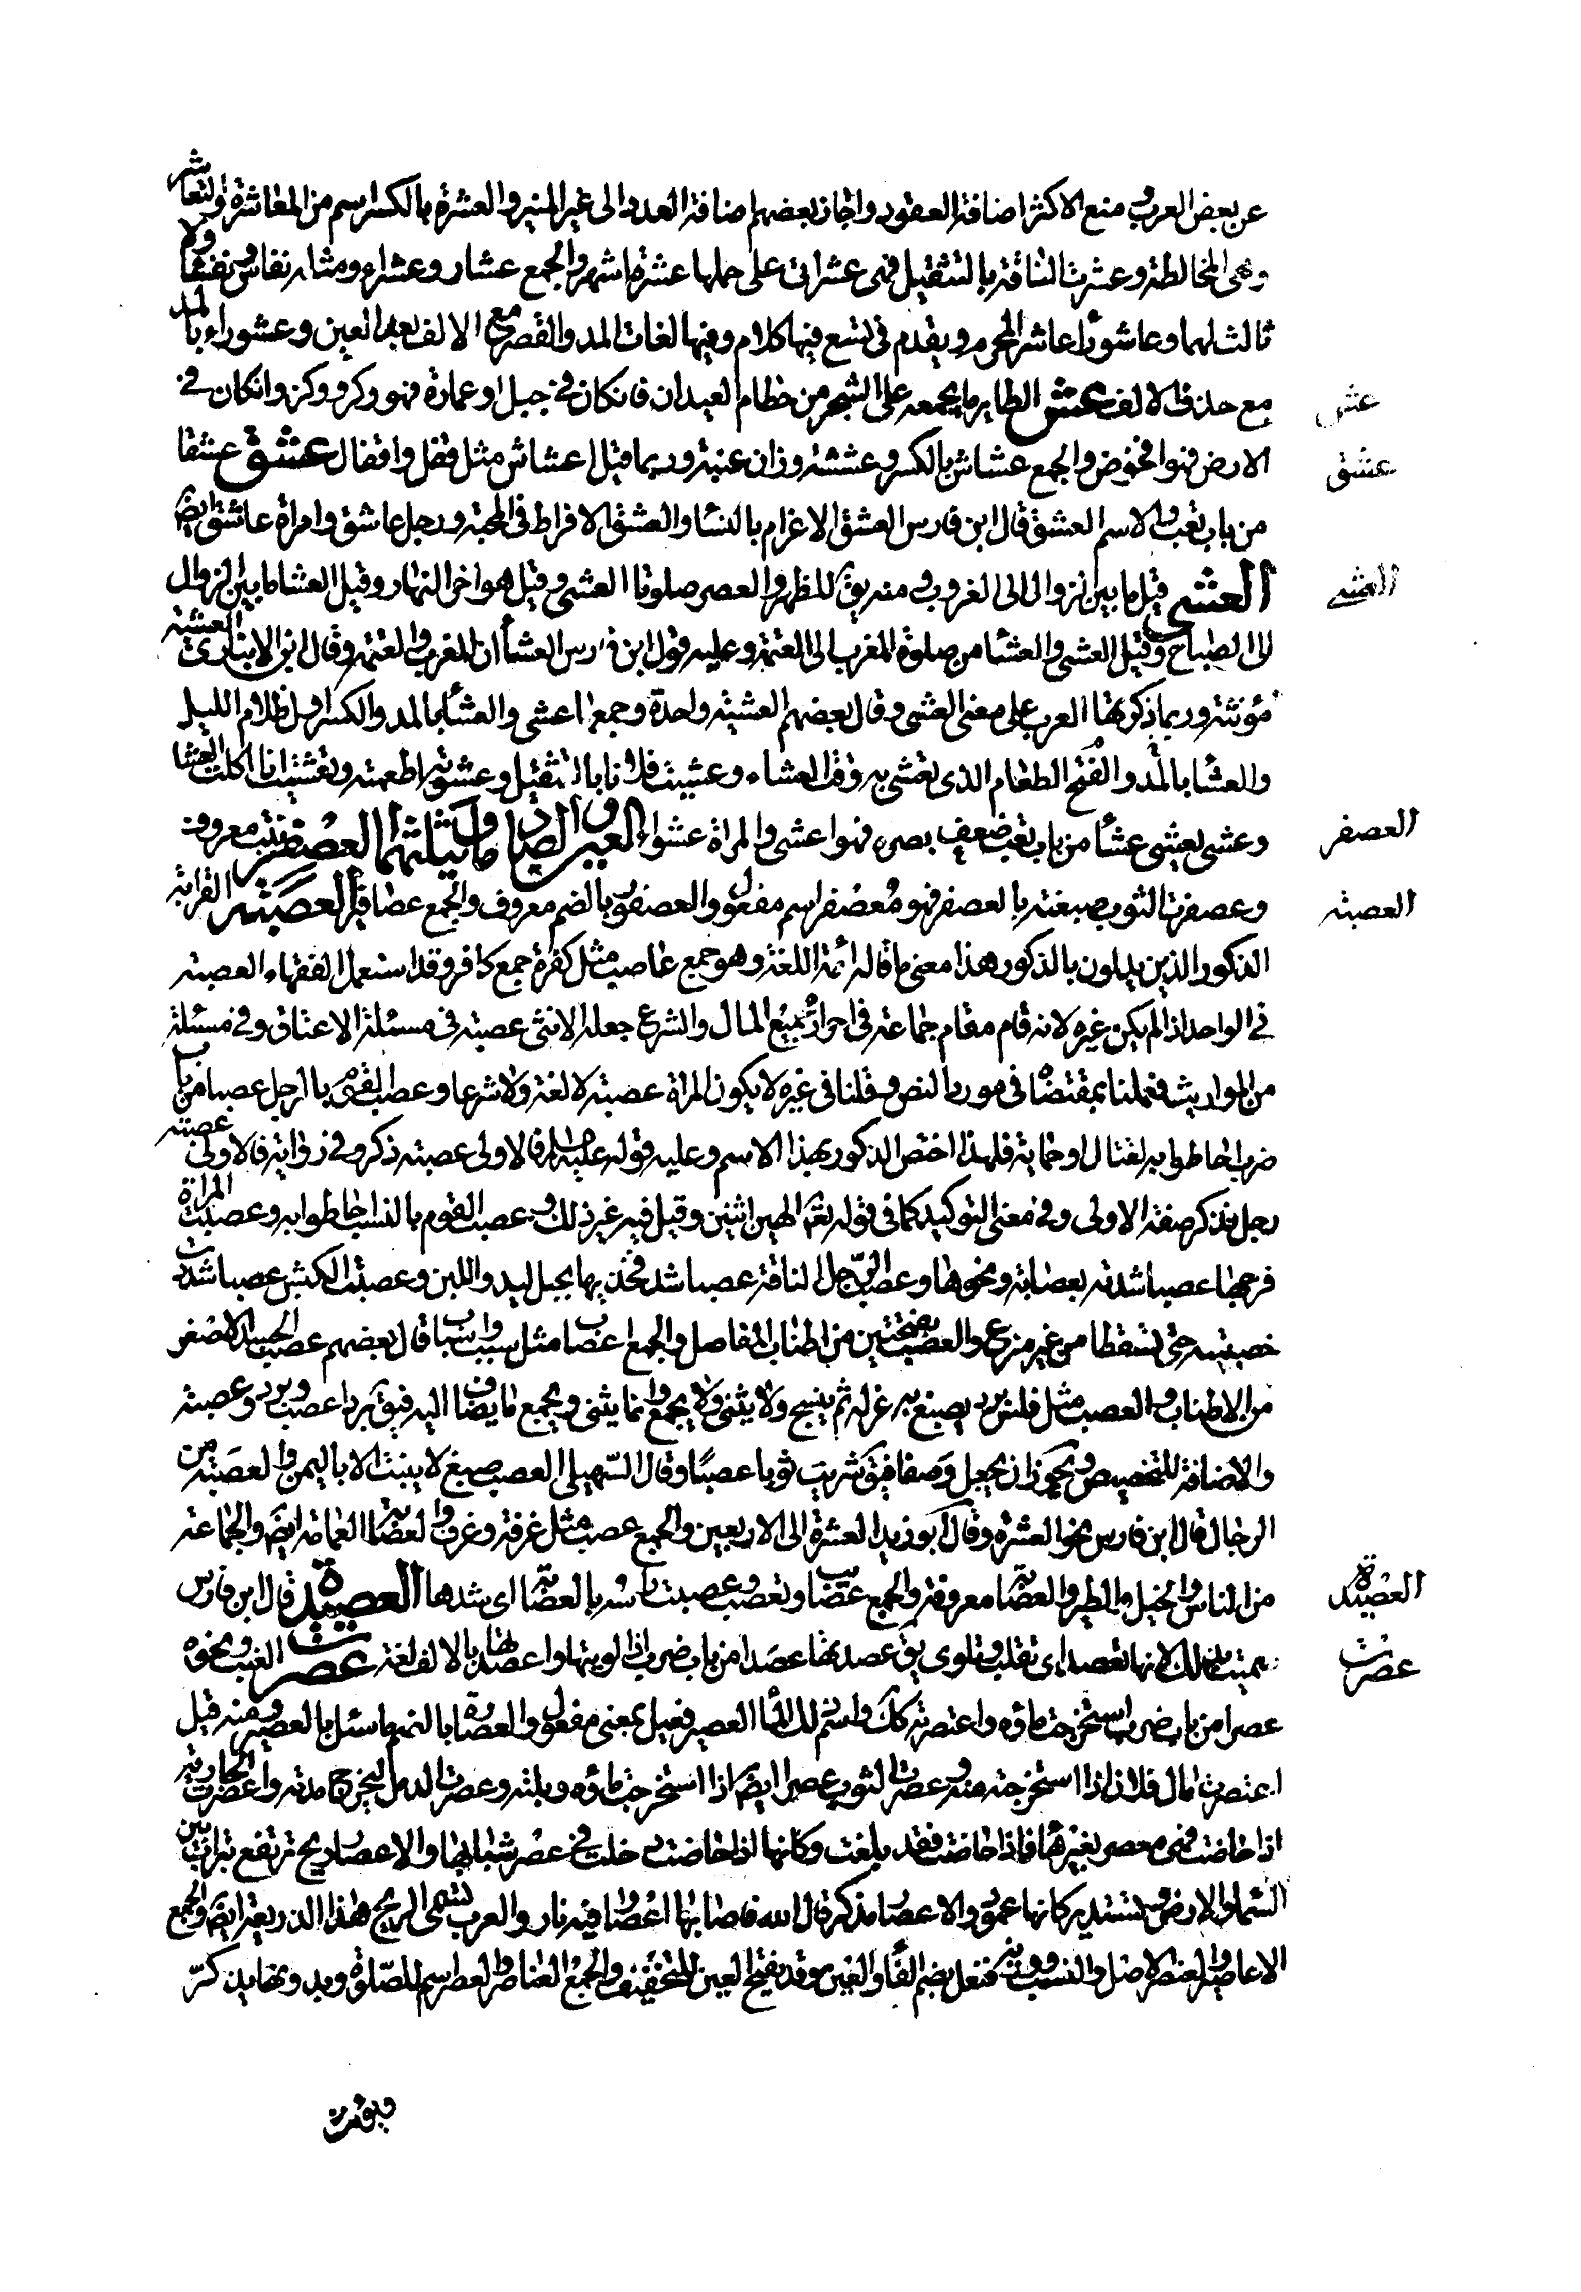 عن بعض العرب ومنع الاكثر اضافة العقود واجاز بعضهم اضافة العدد الى غير المميز والعشرة بالكسر اسم من المعاشرة والتعاشر
وهى المخالطة وعشرت الناقة بالتثقيل فهى عشراء اتى على حملها عشرة اشهر والجمع عشار وعشراء ومثله نفاس ونفساء ولا
ثالث لهما وعاشوراء عاشر المحرم وتقدم فى تسع فيها كلام وفيها لغات المد والقصر مع الالف بعد العين وعشوراء بالمد
مع حذف الالف عش الطاير ما يجمعه على الشجر من حطام العيدان فان كان فى جبل او عمارة فهو وكر ووكن وان كان فى
عش
الارض فهو افحوص والجمع عشاش بالكسر وعششة وزان عنبة وربما قيل اعشاش مثل قفل واقفال عشق عشقا
عشق
من باب تعب والاسم العشق قال ابن فارس العشق الاغرام بالنسا والعشق الافراط فى المحبة ورجل عاشق وامراة عاشق ايضا
العشى قيل ما بين الزوال الى الغروب ومنه يق للظهر والعصر صلوتا العشى وقيل هو اخر النهار وقيل العشا ما بين الزوال
العشى
الى الصباح وقيل العشى والعشا من صلوة المغرب الى العتمة وعليه قول ابن فارس العشاان المغرب والعتمة وقال ابن الانبارى العشية
مؤنثة وربما ذكرتها العرب على معنى العشى وقال بعضهم العشية واحدة وجمعها عشى والعشا بالمد والكسر اول ظلام الليل
والعشا بالمد والفتح الطعام الذى يتعشى به وقت العشاء وعشيت فلانا بالتثقيل وعشوته اطعمته وتعشيت انا اكلت العشا
وعشى يعشى عشا من باب تعب ضعف بصره فهو اعشى والمراة عشواء العين والصاد وما يثلثهما العصفر نبت معروف
العصفر
وعصفرت الثوب صبغته بالعصفر فهو معصفر اسم مفعول والعصفور بالضم معروف والجمع عصافير العصبة القرابة
العصبة
الذكور الذين يدلون بالذكور هذا معنى ما قاله ائمة اللغة وهو جمع عاصب مثل كفرة جمع كافر وقد استعمل الفقهاء العصبة
فى الواحد اذا لم يكن غيره لانه قام مقام جماعة فى احراز جميع المال والشرع جعل الانثى عصبة فى مسئلة الاعتاق وفى مسئلة
من المواريث فعملنا بمقتضاه فى مورد النص وقلنا فى غيره لا يكون المراة عصبة لا لغة ولا شرعا وعصب القوم بالرجل عصبا من باب
ضرب احاطوا به لقتال او حماية فلهذا اختص الذكور بهذا الاسم وعليه قوله عليه السلم فلاولى عصبة ذكر وفى رواية فلاولى عصبة
رجل فذكر صفة لاولى وفى معنى التوكيد كما فى قوله تعم الهين اثنين وقيل فيه غير ذلك وعصب القوم بالنسب احاطوا به وعصبت المراة
فرجها عصبا شدته بعصابة ونحوها وعصب الرجل الناقة عصبا شد فخذيها بحبل ليدر اللبن وعصبت الكبش عصبا شددت
خصيتيه حتى تسقطا من غير نزع والعصب بفتحتين من اطناب المفاصل والجمع اعصاب مثل سبب واسباب قال بعضهم عصب الجسد الاصفر
من الاطناب والعصب مثل فلس برد يصبغ غزله ثم ينسج ولا يثنى ولا يجمع وانما يثنى ويجمع ما يضاف اليه فيق بردا عصب وبرود عصب
والاضافة للتخصيص ويجوز ان يجعل وصفا فيق شريت ثوبا عصبا وقال السهيلى العصب صبغ لا ينبت الا باليمن والعصبة من
الرجال قال ابن فارس نحو العشرة وقال ابو زيد العشرة الى الاربعين والجمع عصب مثل غرفة وغرف والعصابة العمامة ايضا والجماعة
من الناس والخيل والطير والعصابة معروفة والجمع عصايب وتعصب وعصبت راسه بالعصابة اى شدها العصيدة قال ابن فارس
العصيدة
سميت بذلك لانها تعصد اى تقلب وتلوى يق عصدتها عصدا من باب ضرب اذا لويتها واعصدتها بالالف لغة عصرت العنب ونحوه
عصرت
عصرا من باب ضرب استخرجت ماؤه واعتصرته كك واسم ذلك الماء العصير فعيل بمعنى مفعول والعصارة بالضم ما سئل بالعصر ومنه قيل
اعتصرت مال فلان اذا استخرجته منه وعصرت الثوب عصرا ايضا اذا استخرجت ماؤه وبلته وعصرت الدمل ليخرج مدته واعصرت الجارية
اذا حاضت فهى معصر بغير هاء فاذا حاضت فقد بلغت وكانها اذا حاضت دخلت فى عصر شبابها والاعصار ريح ترتفع بتراب بين
السماء والارض وتستدير كانها عمود والاعصار مذكر قال الله فاصابها اعصار فيه نار والعرب تسمى الريح هذا الذريعة ايضا والجمع
الاعاصير والعنصر الاصل والنسب ووزنه فنعل بضم الفاء والعين وقد يفتح العين للتخفيف والجمع العناصر والعصر اسم للصلوة وبدونها يذكر